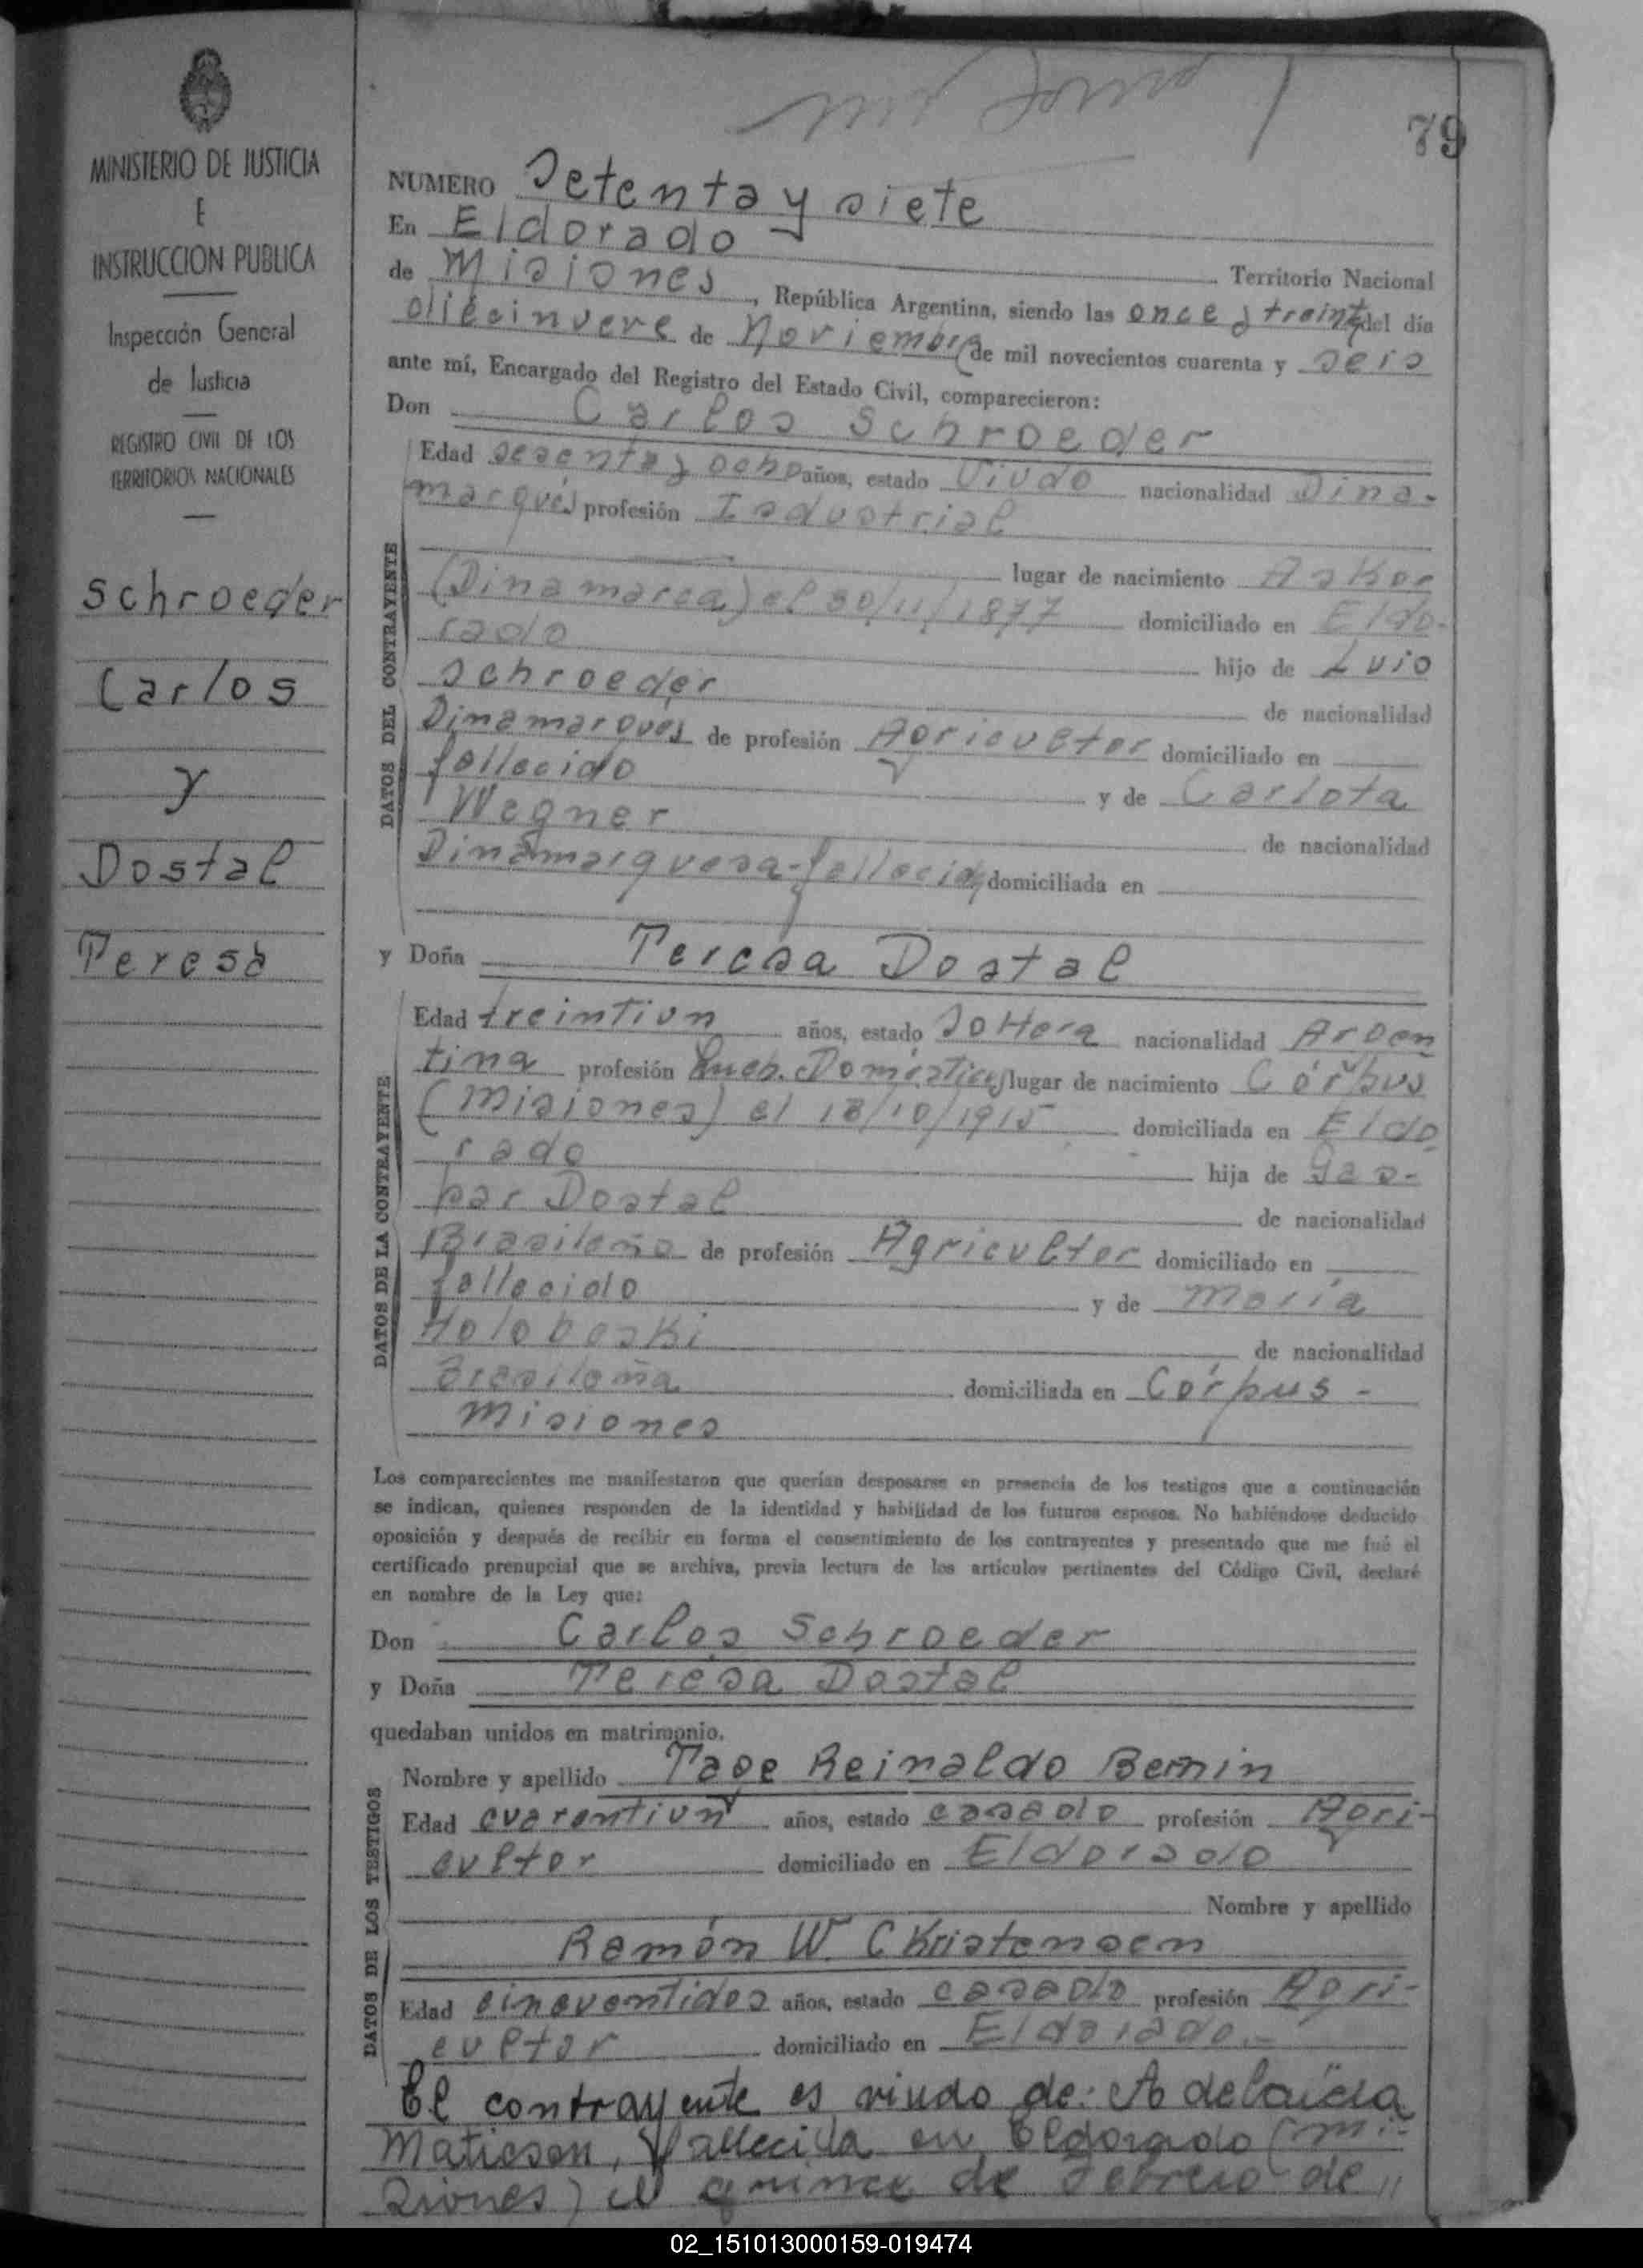 79
MINISTERIO DE JUSTICIA
E
INSTRUCCION PUBLICA
Inspección General
de Justicia
REGISTRO CIVIL DE LOS
TERRITORIOS NACIONALES
Schroeder
Carlos
y
Dostal
Teresa
NUMERO Setenta y siete
En Eldorado
de Misiones Territorio Nacional
, República Argentina, siendo las once y treinta del día
diecinueve de Noviembre de mil novecientos cuarenta y seis
ante mí, Encargado del Registro del Estado Civil, comparecieron:
Don Carlos Schroeder
DATOS DEL CONTRAYENTE
Edad sesenta y ocho años, estado Viudo nacionalidad Dina-
marqués profesión Industrial
lugar de nacimiento
(Dinamarca) el 30/11/1877 domiciliado en Eldo-
rado hijo de Luis
Schroeder de nacionalidad
Dinamarques de profesión Agricultor domiciliado en
fallecido y de Carlota
Wegner de nacionalidad
Dinamarquesa-fallecida domiciliada en
y Doña Teresa Dostal
DATOS DE LA CONTRAYENTE
Edad treintiun años, estado Soltera nacionalidad Argen
tina profesión Queh. Domésticos lugar de nacimiento Córpus
(Misiones) el 18/10/1915 domiciliada en Eldo
rado hija de Gas-
par Dostal de nacionalidad
Brasileño de profesión Agricultor domiciliado en
fallecido y de María
Holoboski de nacionalidad
Brasileña domiciliada en Córpus -
Misiones
Los comparecientes me manifestaron que querían desposarse en presencia de los testigos que a continuación
se indican, quienes responden de la identidad y habilidad de los futuros esposos. No habiéndose deducido
oposición y después de recibir en forma el consentimiento de los contrayentes y presentado que me fué el
certificado prenupcial que se archiva, previa lectura de los artículos pertinentes del Código Civil, declaré
en nombre de la Ley que:
Don Carlos Schroeder
y Doña Teresa Dostal
quedaban unidos en matrimonio.
DATOS DE LOS TESTIGOS
Nombre y apellido Tage Reinaldo Bemin
Edad cuarentiun años, estado casado profesión Agri-
cultor domiciliado en Eldorado
Nombre y apellido
Ramón W. Christensen
Edad cincuentidos años, estado casado profesión Agri-
cultor domiciliado en Eldorado.-
El contrayente es viudo de: Adelaida
Matiesen, fallecida en Eldorado (Mi-
siones) el quince de Febrero de //
02_151013000159-019474